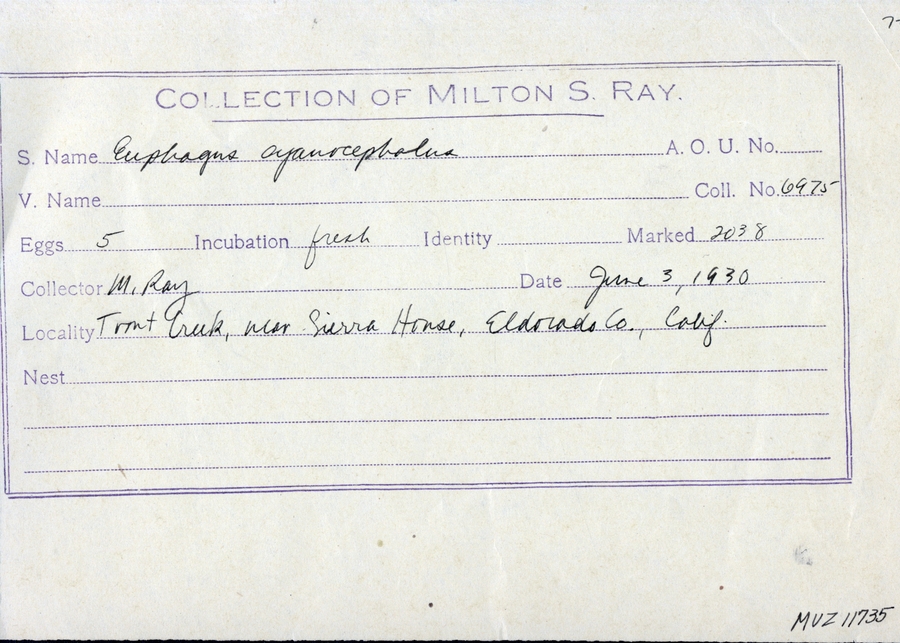 7-
COLLECTION OF MILTON S. RAY.
S. Name Euphagus cyanocephalus A. O. U. No.
V. Name Coll. No. 6975
Eggs 5 Incubation fresh Identity Marked 2038
Collector M. Ray Date June 3, 1930
Locality Trout Creek, near Sierra House, Eldorado Co., Calif.
Nest
MVZ 11735